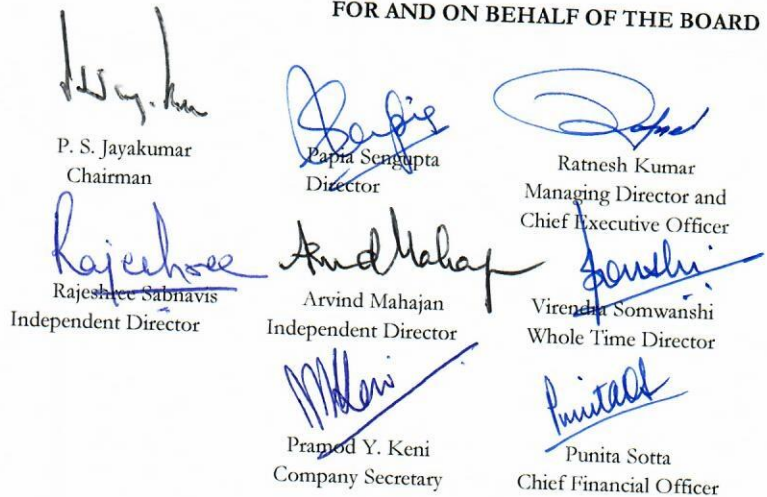 FOR AND ON BEHALF OF THE BOARD
P. S. Jayakumar
Chairman
Papia Sengupta
Director
Ratnesh Kumar
Managing Director and
Chief Executive Officer
Rajeshree
Rajeshree Sabnavis
Independent Director
Arvind Mahajan
Arvind Mahajan
Independent Director
Virendra Somwanshi
Whole Time Director
Pramod Y. Keni
Company Secretary
Punita Sotta
Chief Financial Officer